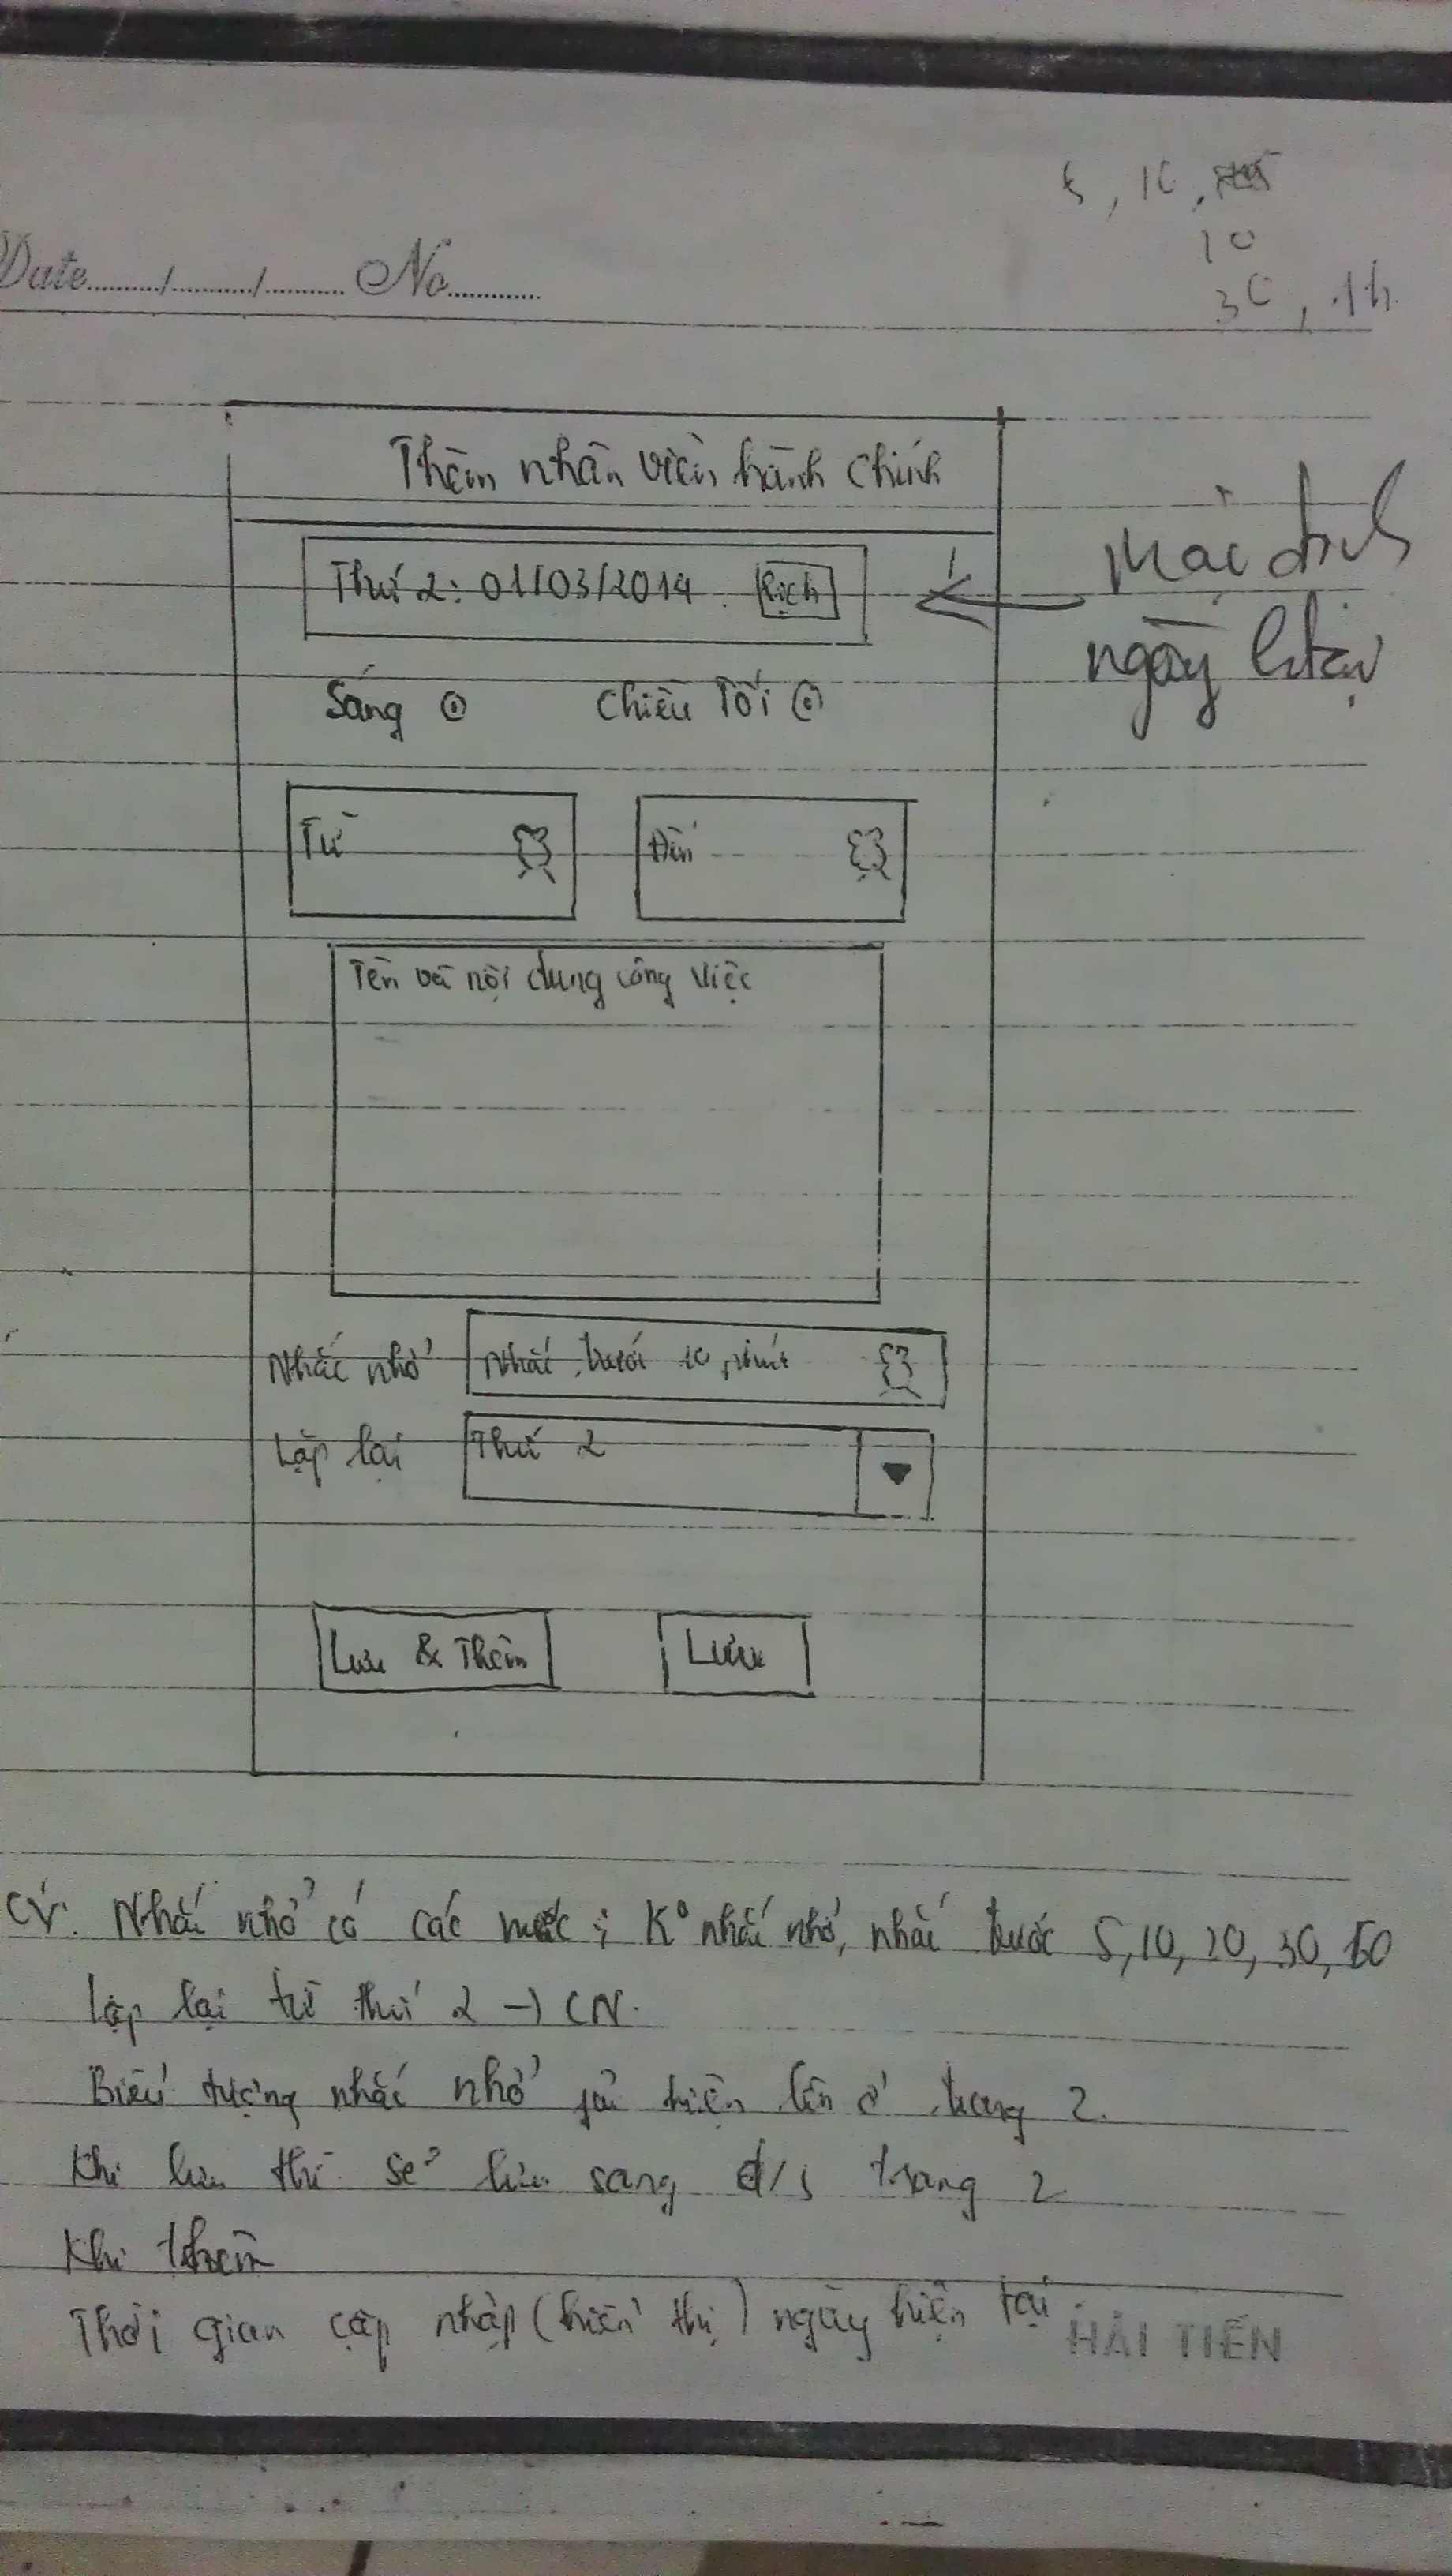 5, 10,
10
30, 1h
Date......./......./....... No..........
Thêm nhân viên hành chính
Thứ 2: 01/03/2014 Lịch
Mặc định
ngày htại
Sáng Chiều Tối
Từ Đến
Tên và nội dung công việc
Nhắc nhở Nhắc trước 10 phút
Lặp lại Thứ 2
Lưu & Thêm Lưu
Nhắc nhở có các mức: K° nhắc nhở, nhắc trước 5, 10, 20, 30, 60
lặp lại từ thứ 2 → CN.
Biểu tượng nhắc nhở hiện lên ở trang 2.
Khi lưu thì sẽ lưu sang d/s trang 2
Khi thêm
Thời gian cập nhập (hiển thị) ngày hiện tại.
HẢI TIẾN